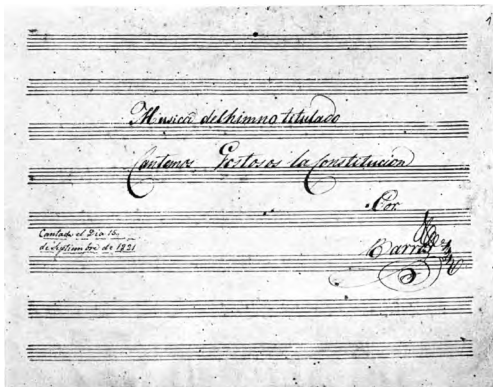 1
Musica del himno titulado
Cantemos Gostosos la Constitucion
Por
Cantada el Dia 15,
de Septiembre de 1821
Barra